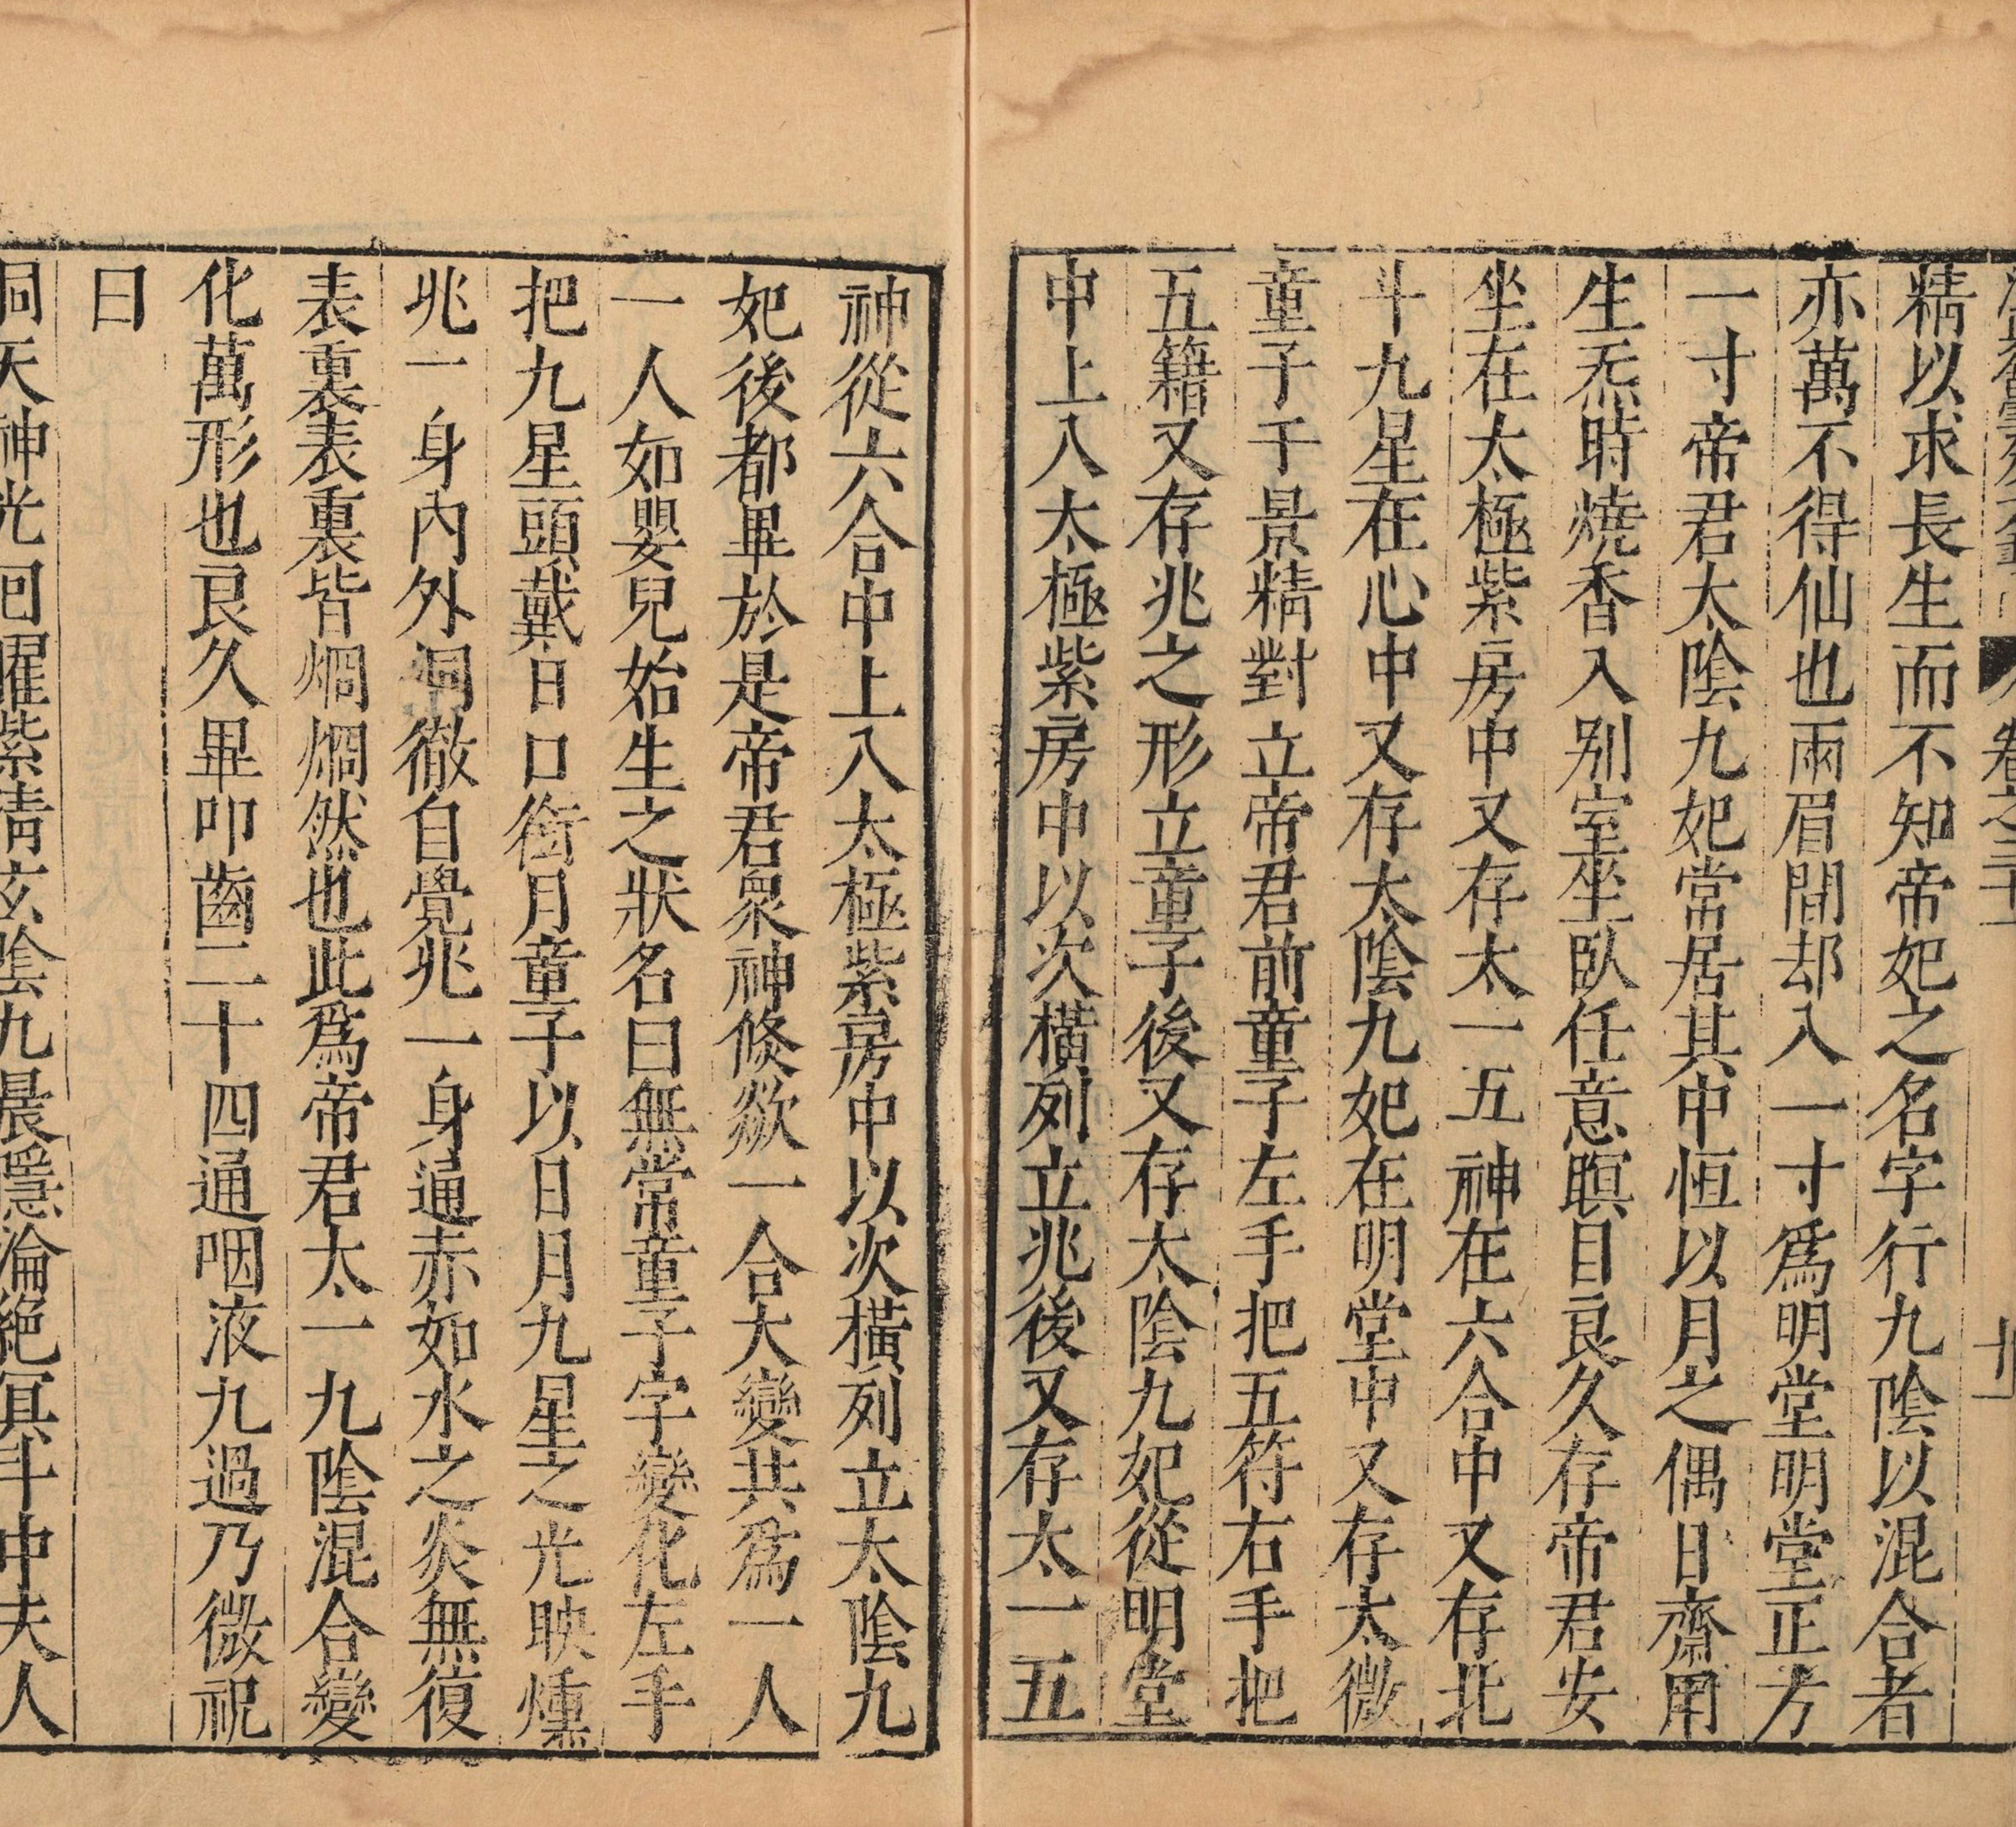 卷之三十
精以求長生而不知帝妃之名字行九陰以混合者
亦萬不得仙也兩眉間却入一寸爲明堂明堂正方
一寸帝君太陰九妃常居其中恒以月之偶日齋用
生炁時燒香入别室坐臥任意瞑目良久存帝君安
坐在太極紫房中又存太一五神在六合中又存北
斗九星在心中又存太陰九妃在明堂中又存太微
童子千景精對立帝君前童子左手把五符右手把
五籍又存兆之形立童子後又存太陰九妃從明堂
中上入太極紫房中以次橫列立兆後又存太一五
神從六合中上入太極紫房中以次橫列立太陰九
妃後都畢於是帝君衆神倐欻一合大變共爲一人
一人如嬰兒始生之狀名曰無常童子字變化左手
把九星頭戴日口銜月童子以日月九星之光映燻
兆一身內外洞徹自覺兆一身通赤如水之炎無復
表裏表裏皆烱烱然也此爲帝君太一九陰混合變
化萬形也良久畢叩齒二十四通咽液九過乃微祝
曰
洞天神光回曜紫清玄陰九晨隱淪絶冥斗中夫人